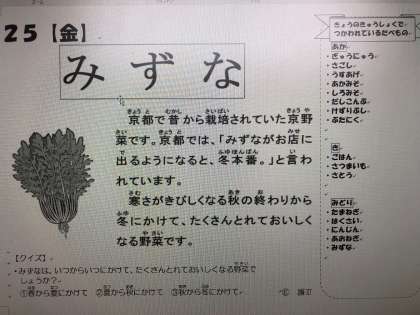 25【金】
みずな
京都で昔から栽培されていた京野
菜です。京都では、「みずながお店に
出るようになると、冬本番。」と言わ
れています。
寒さがきびしくなる秋の終わりから
冬にかけて、たくさんとれておいしく
なる野菜です。
【クイズ】
・みずなは、いつからいつにかけて、たくさんとれておいしくなる野菜で
しょうか？
①春から夏にかけて ②夏から秋にかけて ③秋から冬にかけて
きょうのきゅうしょくで
つかわれているたべもの
あか
ぎゅうにゅう
さごし
うすあげ
あかみそ
しろみそ
だしこんぶ
けずりぶし
ぶたにく
き
ごはん
さつまいも
さとう
みどり
たまねぎ
はくさい
にんじん
あおねぎ
みずな